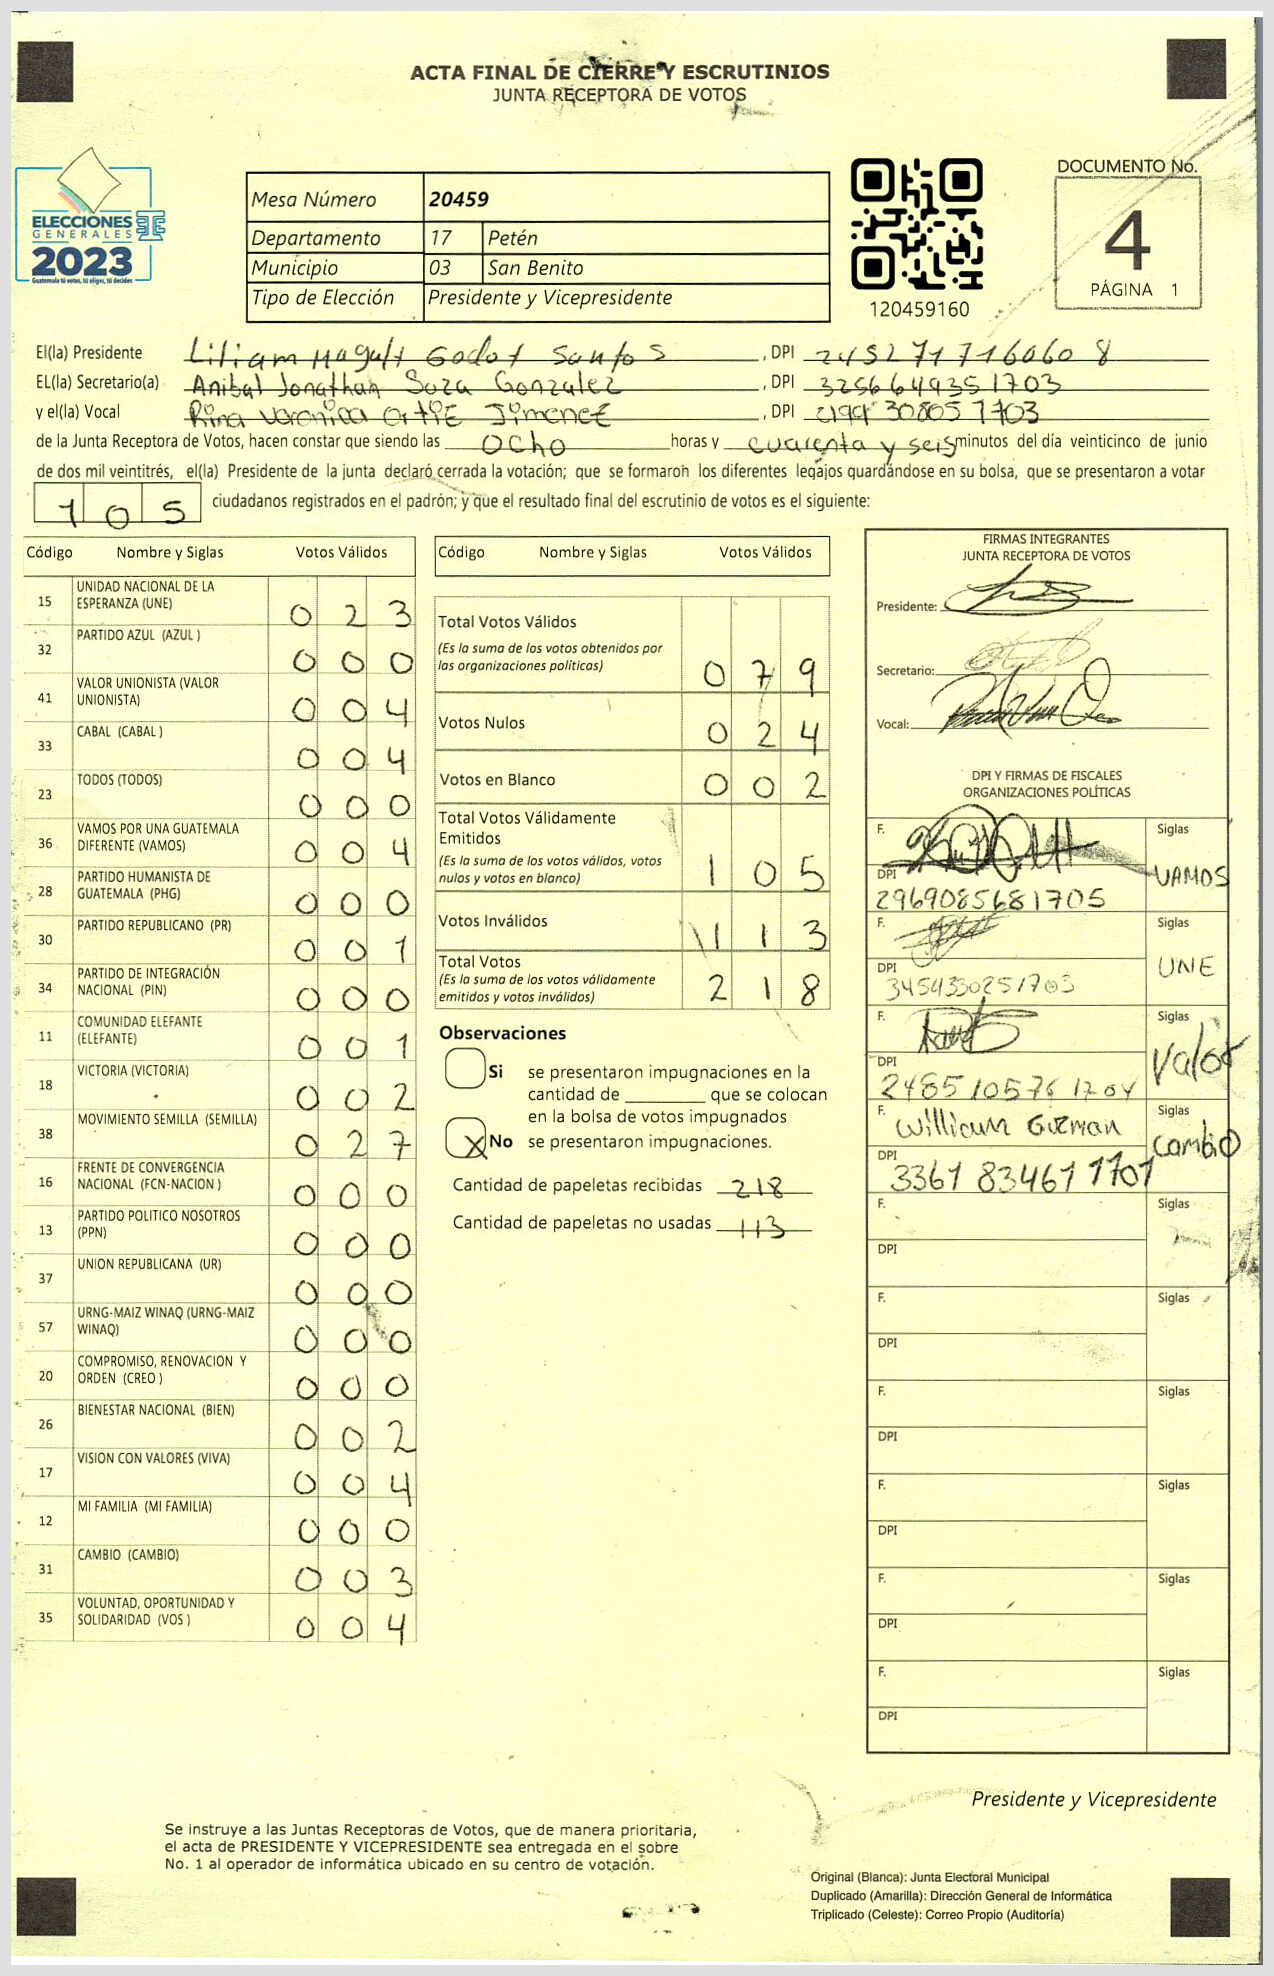 ACTA FINAL DE CIERRE Y ESCRUTINIOS
JUNTA RECEPTORA DE VOTOS
ELECCIONES
GENERALES
2023
Guatemala tú votas, tú eliges, tú decides
Mesa Número 20459
Departamento 17 Petén
Municipio 03 San Benito
Tipo de Elección Presidente y Vicepresidente
120459160
DOCUMENTO No.
4
PÁGINA 1
El(la) Presidente Liliam Magali Godoy Santos, DPI 2452717160608
EL(la) Secretario(a) Anibal Jonathan Soza Gonzalez, DPI 3256649351703
y el(la) Vocal Rina Veronica Ortiz Jimenez, DPI 2199308051703
de la Junta Receptora de Votos, hacen constar que siendo las Ocho horas y cuarenta y seis minutos del día veinticinco de junio
de dos mil veintitrés, el(la) Presidente de la junta declaró cerrada la votación; que se formaron los diferentes legajos guardándose en su bolsa, que se presentaron a votar
105 ciudadanos registrados en el padrón; y que el resultado final del escrutinio de votos es el siguiente:
Código Nombre y Siglas Votos Válidos
15 UNIDAD NACIONAL DE LA ESPERANZA (UNE) 023
32 PARTIDO AZUL (AZUL ) 000
41 VALOR UNIONISTA (VALOR UNIONISTA) 004
33 CABAL (CABAL ) 004
23 TODOS (TODOS) 000
36 VAMOS POR UNA GUATEMALA DIFERENTE (VAMOS) 004
28 PARTIDO HUMANISTA DE GUATEMALA (PHG) 000
30 PARTIDO REPUBLICANO (PR) 001
34 PARTIDO DE INTEGRACIÓN NACIONAL (PIN) 000
11 COMUNIDAD ELEFANTE (ELEFANTE) 001
18 VICTORIA (VICTORIA) 002
38 MOVIMIENTO SEMILLA (SEMILLA) 027
16 FRENTE DE CONVERGENCIA NACIONAL (FCN-NACION ) 000
13 PARTIDO POLITICO NOSOTROS (PPN) 000
37 UNION REPUBLICANA (UR) 000
57 URNG-MAIZ WINAQ (URNG-MAIZ WINAQ) 000
20 COMPROMISO, RENOVACION Y ORDEN (CREO ) 000
26 BIENESTAR NACIONAL (BIEN) 002
17 VISION CON VALORES (VIVA) 004
12 MI FAMILIA (MI FAMILIA) 000
31 CAMBIO (CAMBIO) 003
35 VOLUNTAD, OPORTUNIDAD Y SOLIDARIDAD (VOS ) 004
Código Nombre y Siglas Votos Válidos
Total Votos Válidos 079
(Es la suma de los votos obtenidos por
las organizaciones políticas)
Votos Nulos 024
Votos en Blanco 002
Total Votos Válidamente
Emitidos 105
(Es la suma de los votos válidos, votos
nulos y votos en blanco)
Votos Inválidos 113
Total Votos 218
(Es la suma de los votos válidamente
emitidos y votos inválidos)
Observaciones
Si se presentaron impugnaciones en la
cantidad de ________ que se colocan
en la bolsa de votos impugnados
X No se presentaron impugnaciones.
Cantidad de papeletas recibidas 218
Cantidad de papeletas no usadas 113
FIRMAS INTEGRANTES
JUNTA RECEPTORA DE VOTOS
Presidente:
Secretario:
Vocal:
DPI Y FIRMAS DE FISCALES
ORGANIZACIONES POLÍTICAS
F. Siglas VAMOS
DPI 2969085681705
F. Siglas UNE
DPI 3454330251703
F. Siglas Valor
DPI 2485105761704
F. William Guzman Siglas Cambio
DPI 3361834611701
F. Siglas
DPI
F. Siglas
DPI
F. Siglas
DPI
F. Siglas
DPI
F. Siglas
DPI
F. Siglas
DPI
Presidente y Vicepresidente
Se instruye a las Juntas Receptoras de Votos, que de manera prioritaria,
el acta de PRESIDENTE Y VICEPRESIDENTE sea entregada en el sobre
No. 1 al operador de informática ubicado en su centro de votación.
Original (Blanca): Junta Electoral Municipal
Duplicado (Amarilla): Dirección General de Informática
Triplicado (Celeste): Correo Propio (Auditoría)